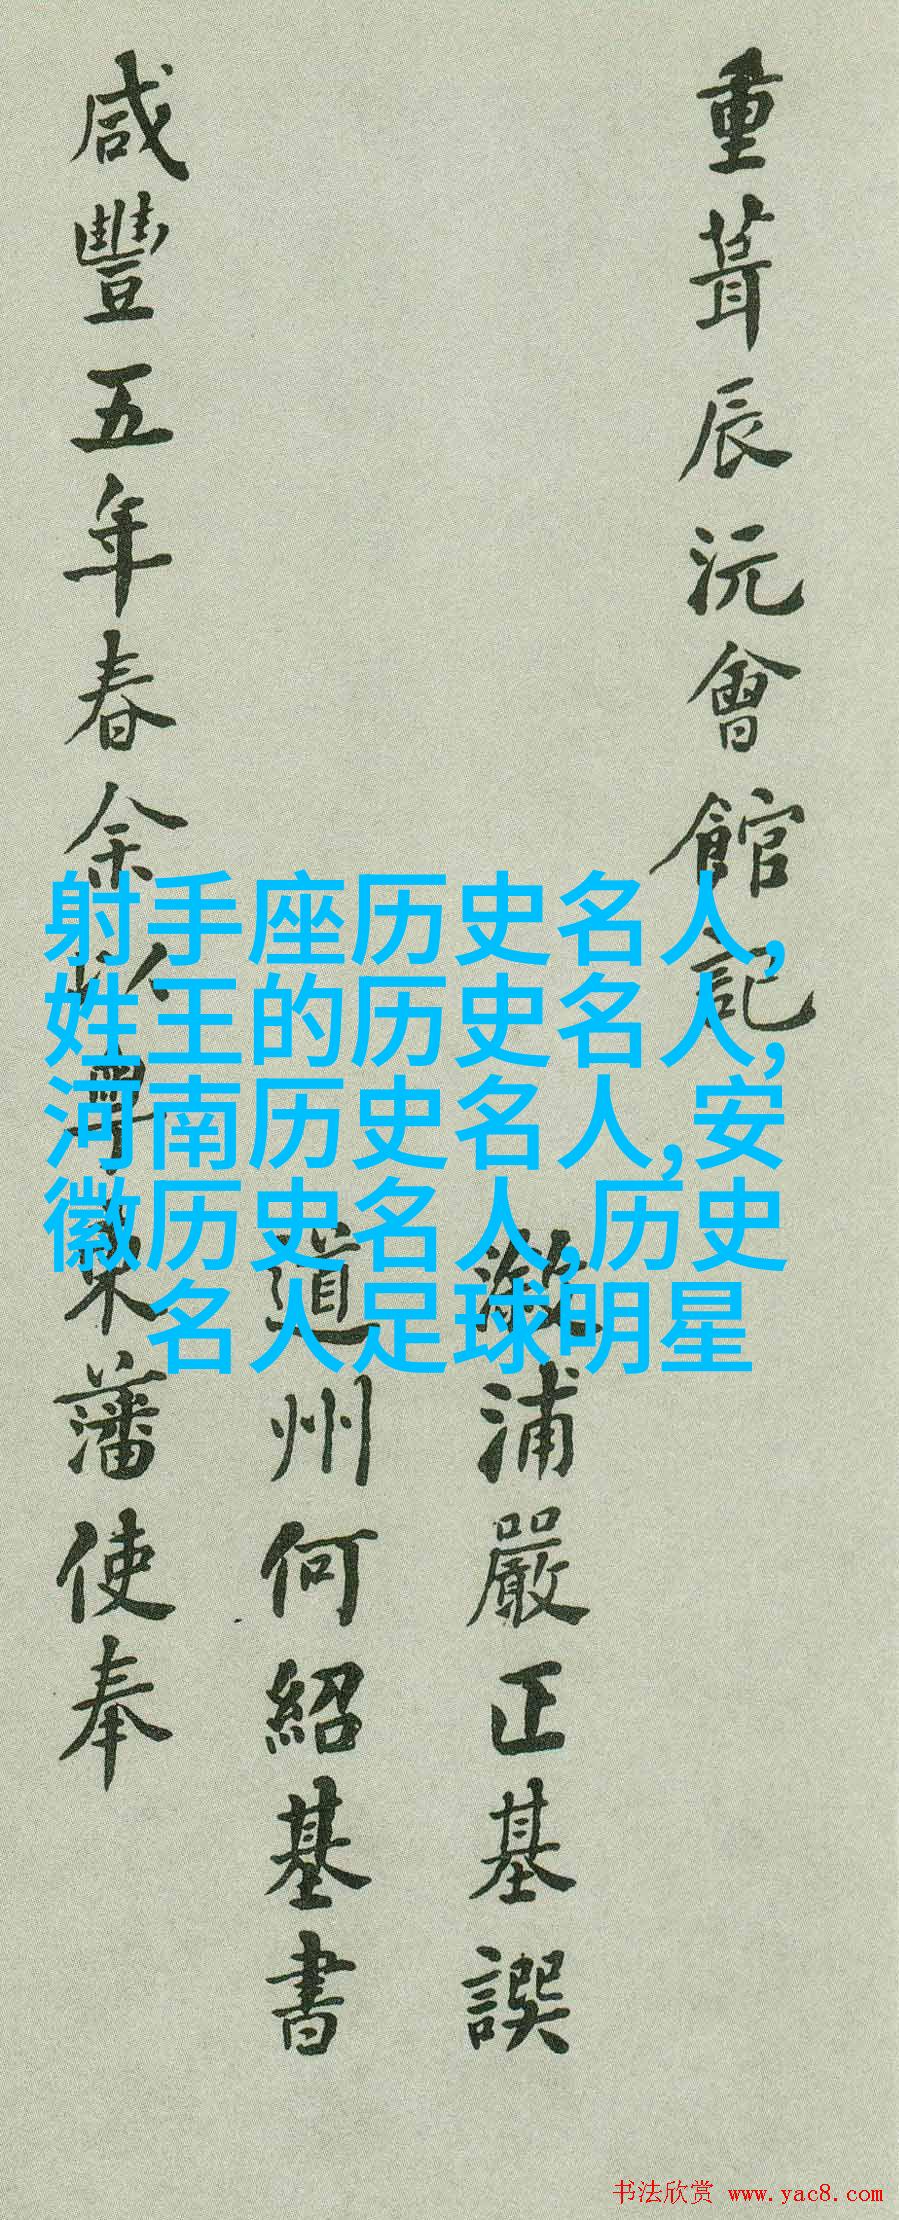 重葺辰沅會館記
漵浦嚴正基譔
道州何紹基書
咸豐五年春余以粵東藩使奉
射手座历史名人,
姓王的历史名人,
河南历史名人,安
徽历史名人,历史
名人足球明星
书法欣赏 www.yac8.com